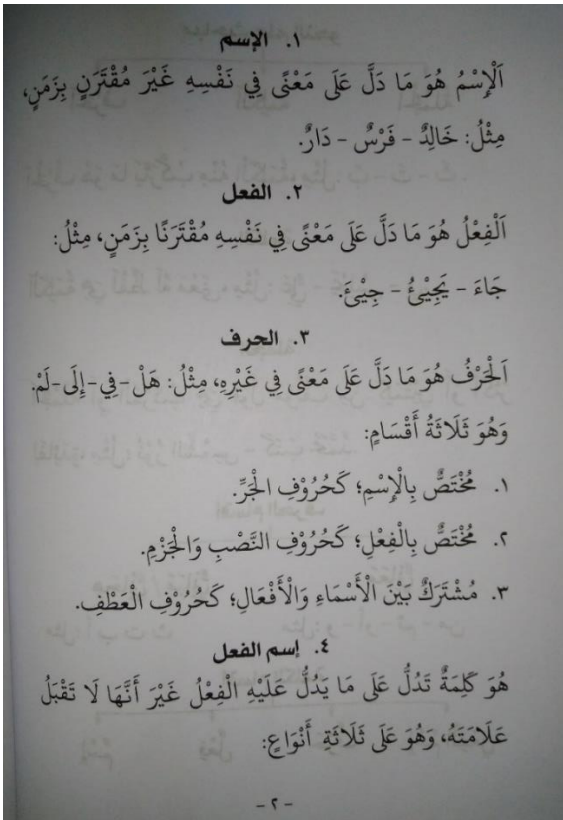 ١. الإسم
اَلْإِسْمُ هُوَ مَا دَلَّ عَلَى مَعْنًى فِي نَفْسِهِ غَيْرَ مُقْتَرَنٍ بِزَمَنٍ،
مِثْلُ: خَالِدٌ - فَرْسٌ - دَارٌ.
٢. الفعل
اَلْفِعْلُ هُوَ مَا دَلَّ عَلَى مَعْنًى فِي نَفْسِهِ مُقْتَرَنًا بِزَمَنٍ، مِثْلُ:
جَاءَ - يَجِيْئُ - جِيْئَ.
٣. الحرف
اَلْحَرْفُ هُوَ مَا دَلَّ عَلَى مَعْنًى فِي غَيْرِهِ، مِثْلُ: هَلْ-فِي-إِلَى-لَمْ.
وَهُوَ ثَلَاثَةُ أَقْسَامٍ:
١. مُخْتَصٌّ بِالْإِسْمِ؛ كَحُرُوْفِ الْجَرِّ.
٢. مُخْتَصٌّ بِالْفِعْلِ؛ كَحُرُوْفِ النَّصْبِ وَالْجَزْمِ.
٣. مُشْتَرَكٌ بَيْنَ الْأَسْمَاءِ وَالْأَفْعَالِ؛ كَحُرُوْفِ الْعَطْفِ.
٤. إسم الفعل
هُوَ كَلِمَةٌ تَدُلُّ عَلَى مَا يَدُلُّ عَلَيْهِ الْفِعْلُ غَيْرَ أَنَّهَا لَا تَقْبَلُ
عَلَامَتَهُ، وَهُوَ عَلَى ثَلَاثَةِ أَنْوَاعٍ:
- ٢ -